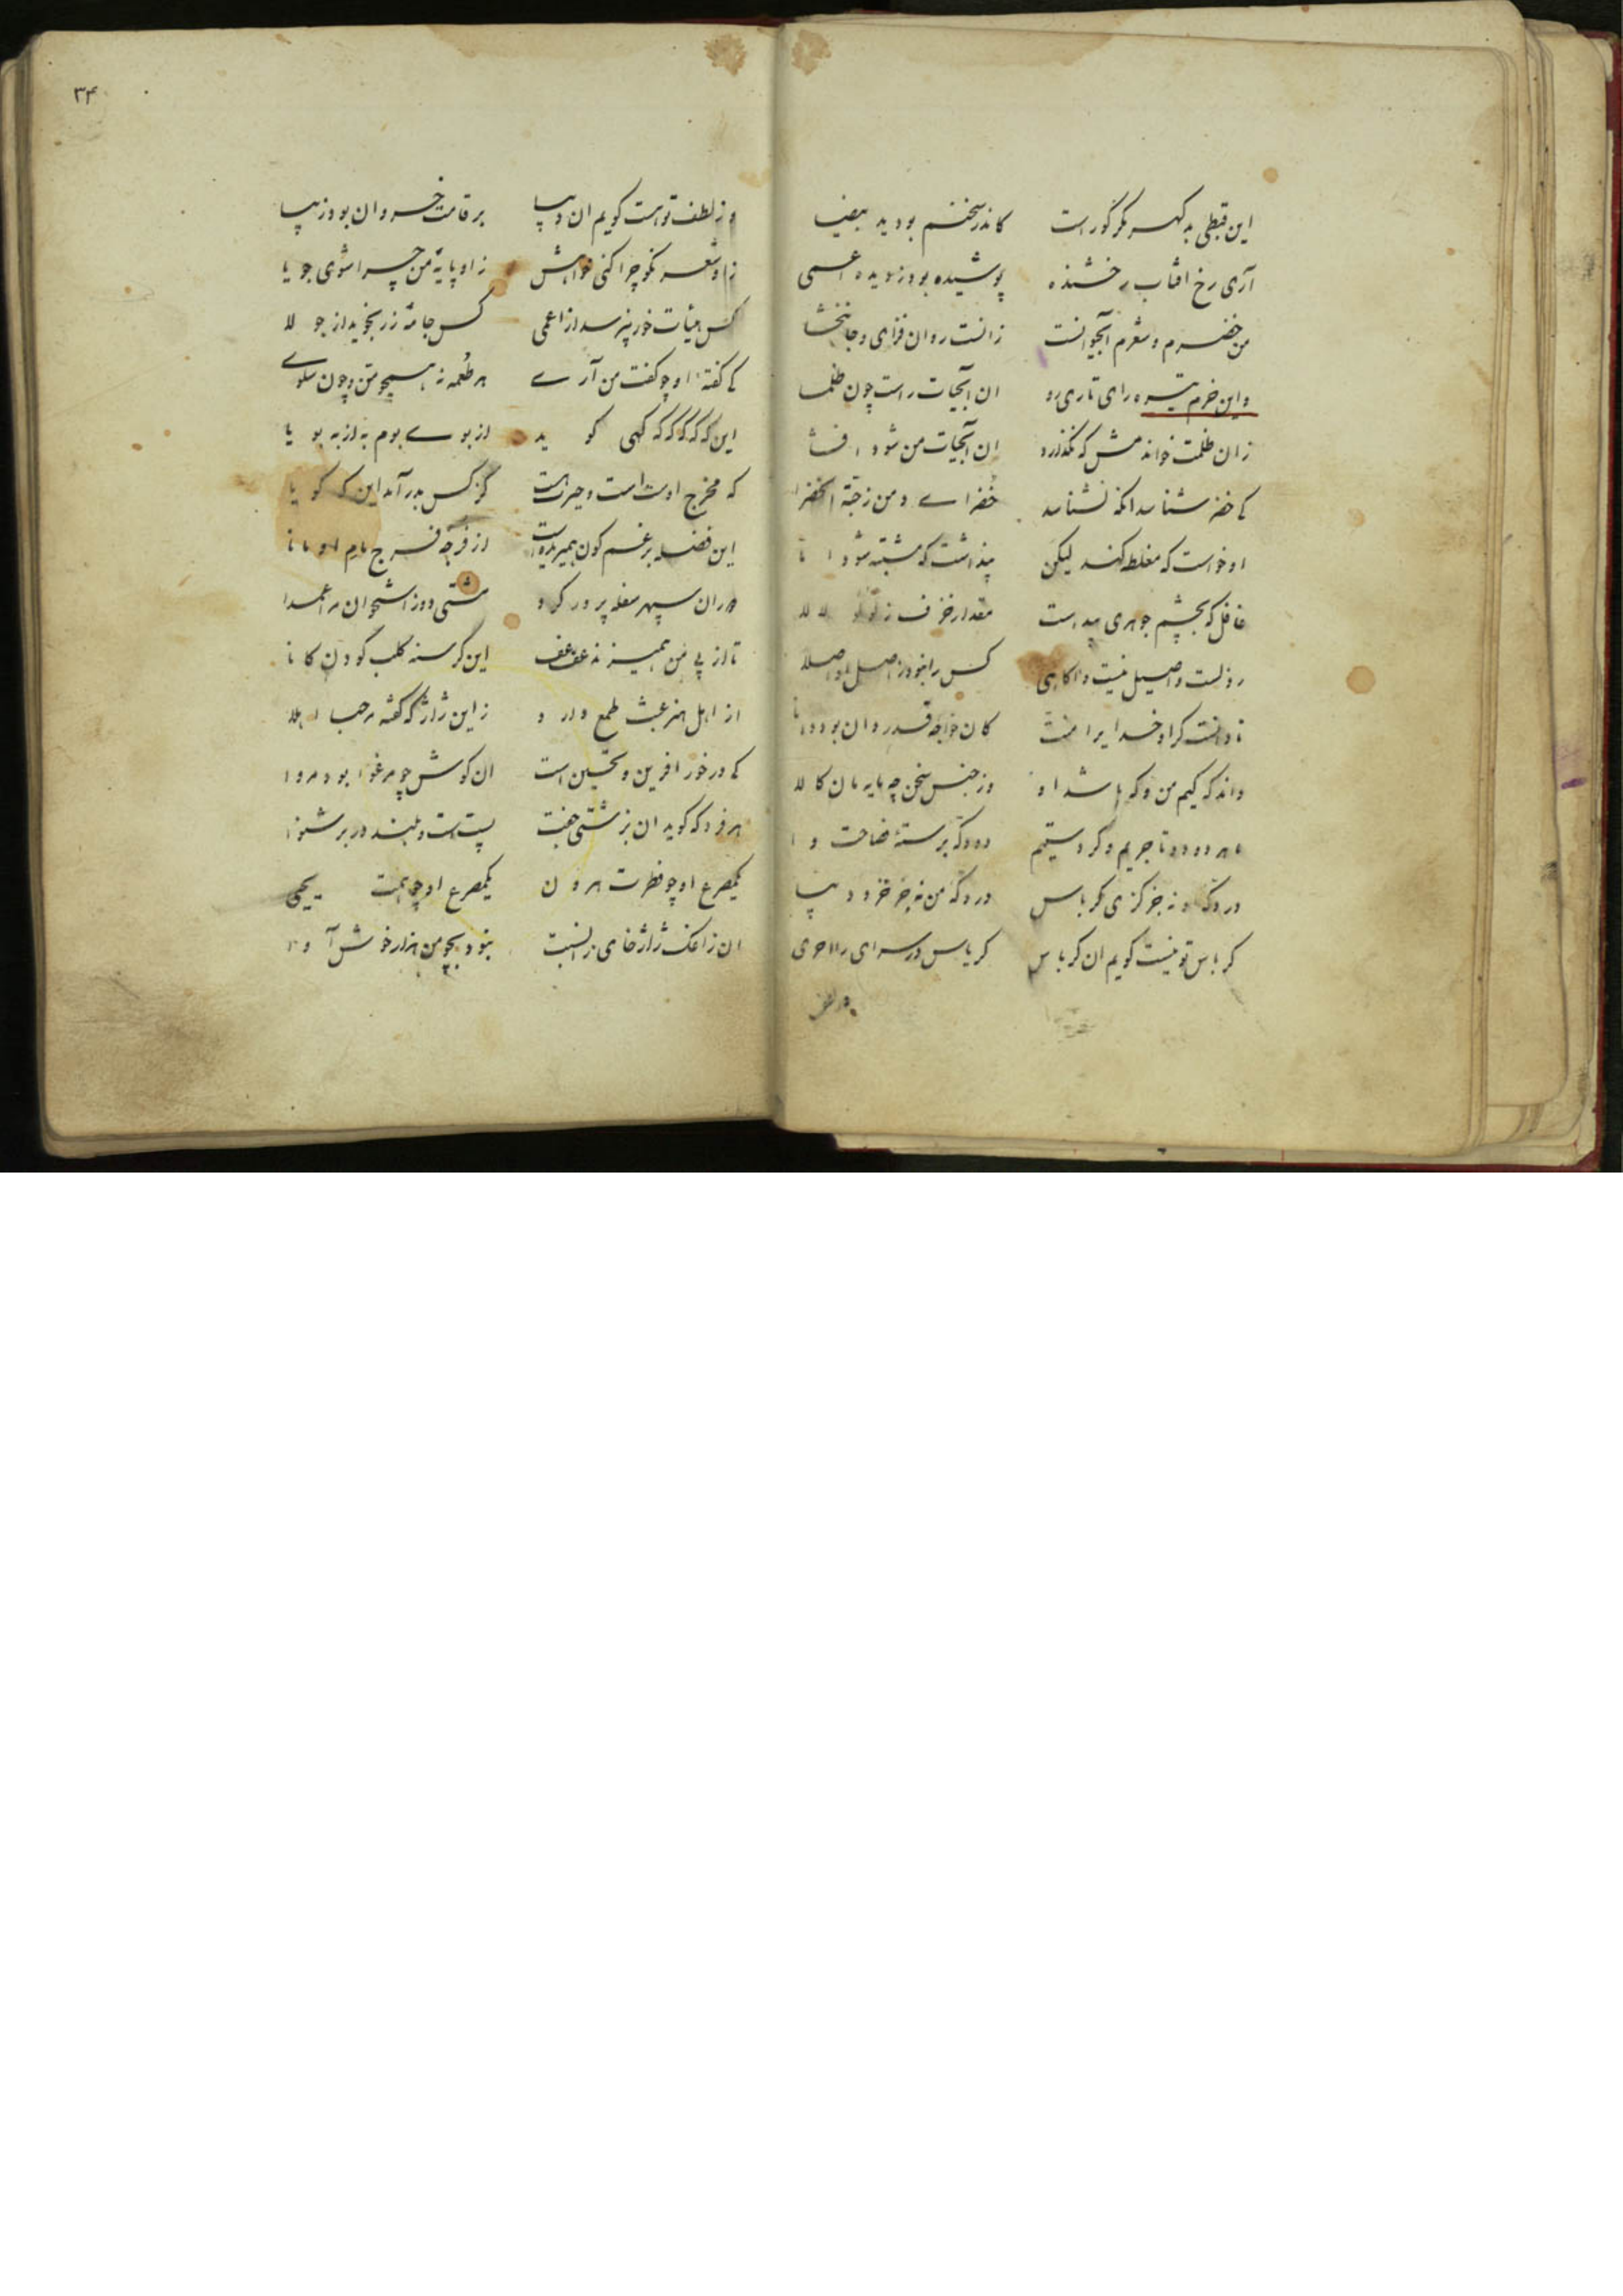 این قبطی بد کهر مکر کور است کاندر سخنم بود ید بیضا
آری رخ افتاب رخشنده پوشیده بود ز دیده اعمی
من خضرم و شعرم آبحیوانست زانست روان فزای و جانبخشا
واین خرم تیره رای تاری رو ان آبحیات راست چون ظلما
زان ظلمت خواندمش که نگذارد ان آبحیات من شود افشا
کی خضر شناسد انکه نشناسد خضرای دمن ز جنة الخضرا
او خواست که مغلطه کند لیکن پنداشت که مشتبه شود انا
غافل که بچشم جوهری پیداست مقدار خزف ز لؤلؤ لالا
رذلست و اصیل نیست و اکاهی کس را نبود ز اصل او اصلا
نادانست کر او خدایرا منت کان خواجه قدردان بود دانا
داند که کیم من و که باشد او وز جنس سخن چه مایه مان کالا
ما هر دو دو تاجریم و کردستیم دو دکه برستهٔ فصاحت وا
در دکه او نه جز کزی کرباس در دکهٔ من نه جز خز و دیبا
کرباس تو نیست کویم ان کرباس کرباس در سرای را احری
وز لطف
۳۴
وز لطف تو هست کویم ان دیبا بر قامت خسروان بود زیبا
زاو شعر نکو چرا کنی خواهش زاو پایهٔ من چرا شوی جویا
کس هیأت خور نپرسد از اعمی کس جامهٔ زر نجوید از جولا
کی کفتهٔ او چو کفت من آری هر طعمه نه همچو من و چون سلوی
این که که که که که کهی کوید از بوی بوم به از به بویا
که مخرج اوست است و حیرت هست کز کس بدر آمد این که کویا
این فضله برغم کون همیریدست از فرجه فرج مام او مانا
دوران سپهر سفله پرور کرد مشتی دوز استخوانش عمدا
تا از پی من همی زند عف عف این کرسنه کلب کودن کانا
از اهل هنر عبث طمع دارد ز این ژاژ که کفته مرحبا اهلا
کی درخور افرین و تحسین است ان کوش چو مرغوا بود مروا
هر فرد که کوید ان بزشتی جفت پست است و بلند در بر شنوا
یکمصرع او چو فطرت هرون یکمصرع او چو همت یحیی
ان زاغک ژاژخای را نسبت نبود بچو من هزار خوش آوا